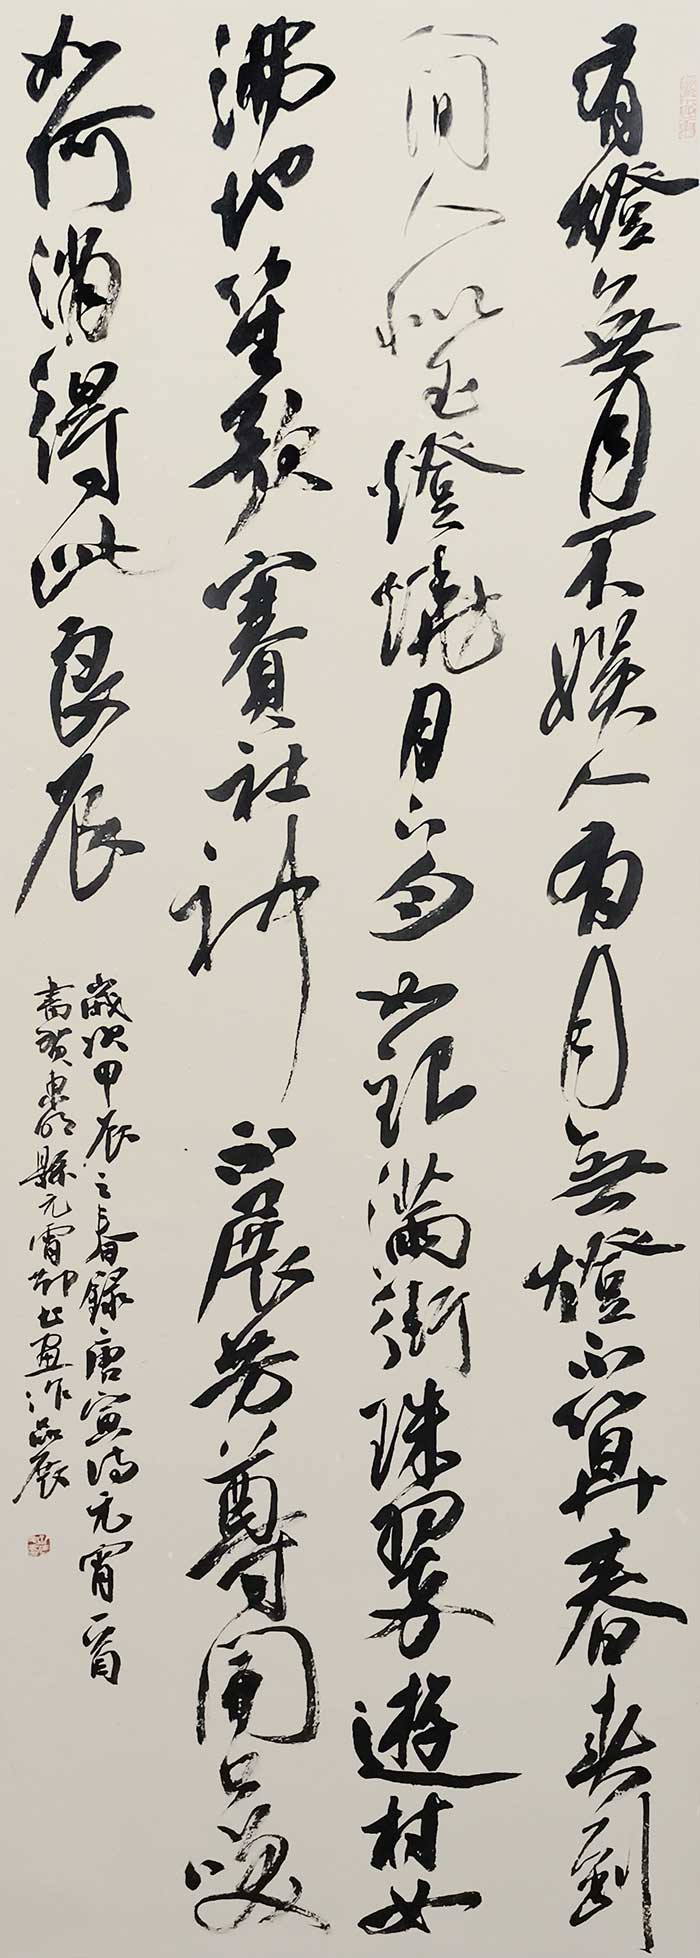 有燈無月不娛人有月無燈不算春春到
人間人似玉燈燒月下月如銀滿街珠翠遊村女
沸地笙歌賽社神不展芳尊開口笑
如何消得此良辰
歲次甲辰之春錄唐寅詩元宵一首
書賀東明縣元宵節書畫作品展